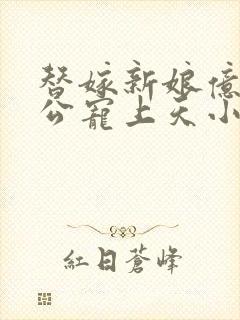 替嫁新娘億
公寵上天小
紅日蒼峰